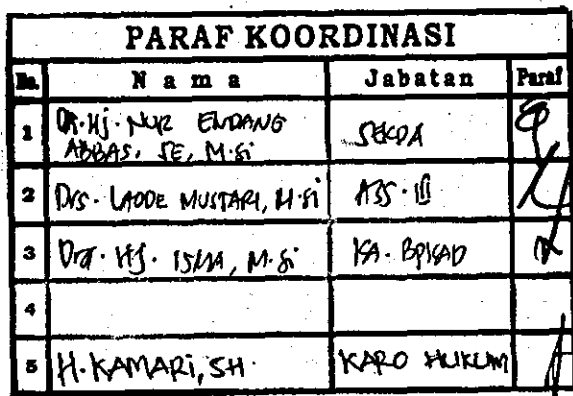 PARAF KOORDINASI
No. Nama Jabatan Paraf
1 DR. Hj. NUR ENDANG
ABBAS, SE, M.Si SEKDA
2 Drs. LAODE MUSTARI, M.Si ASS. III
3 Dra. Hj. ISMA, M.Si KA. BPKAD
4
5 H. KAMARI, SH. KARO HUKUM